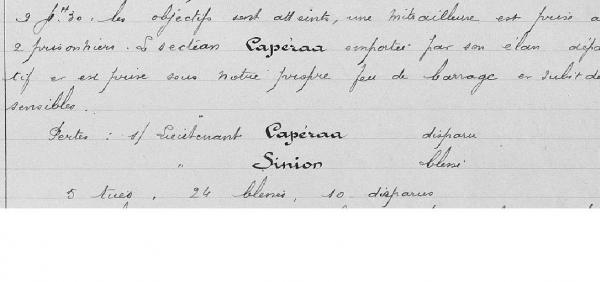 2 h 30. les objectifs sont atteints, une mitrailleuse est prise a
2 prisonniers. La section Capéraa emportée par son élan dépa
tif et est prise sous notre propre feu de barrage et subit de
sensibles.
Pertes : s/ Lieutenant Capéraa disparu
" Sinion blessé
5 tués, 24 blessés, 10 disparus